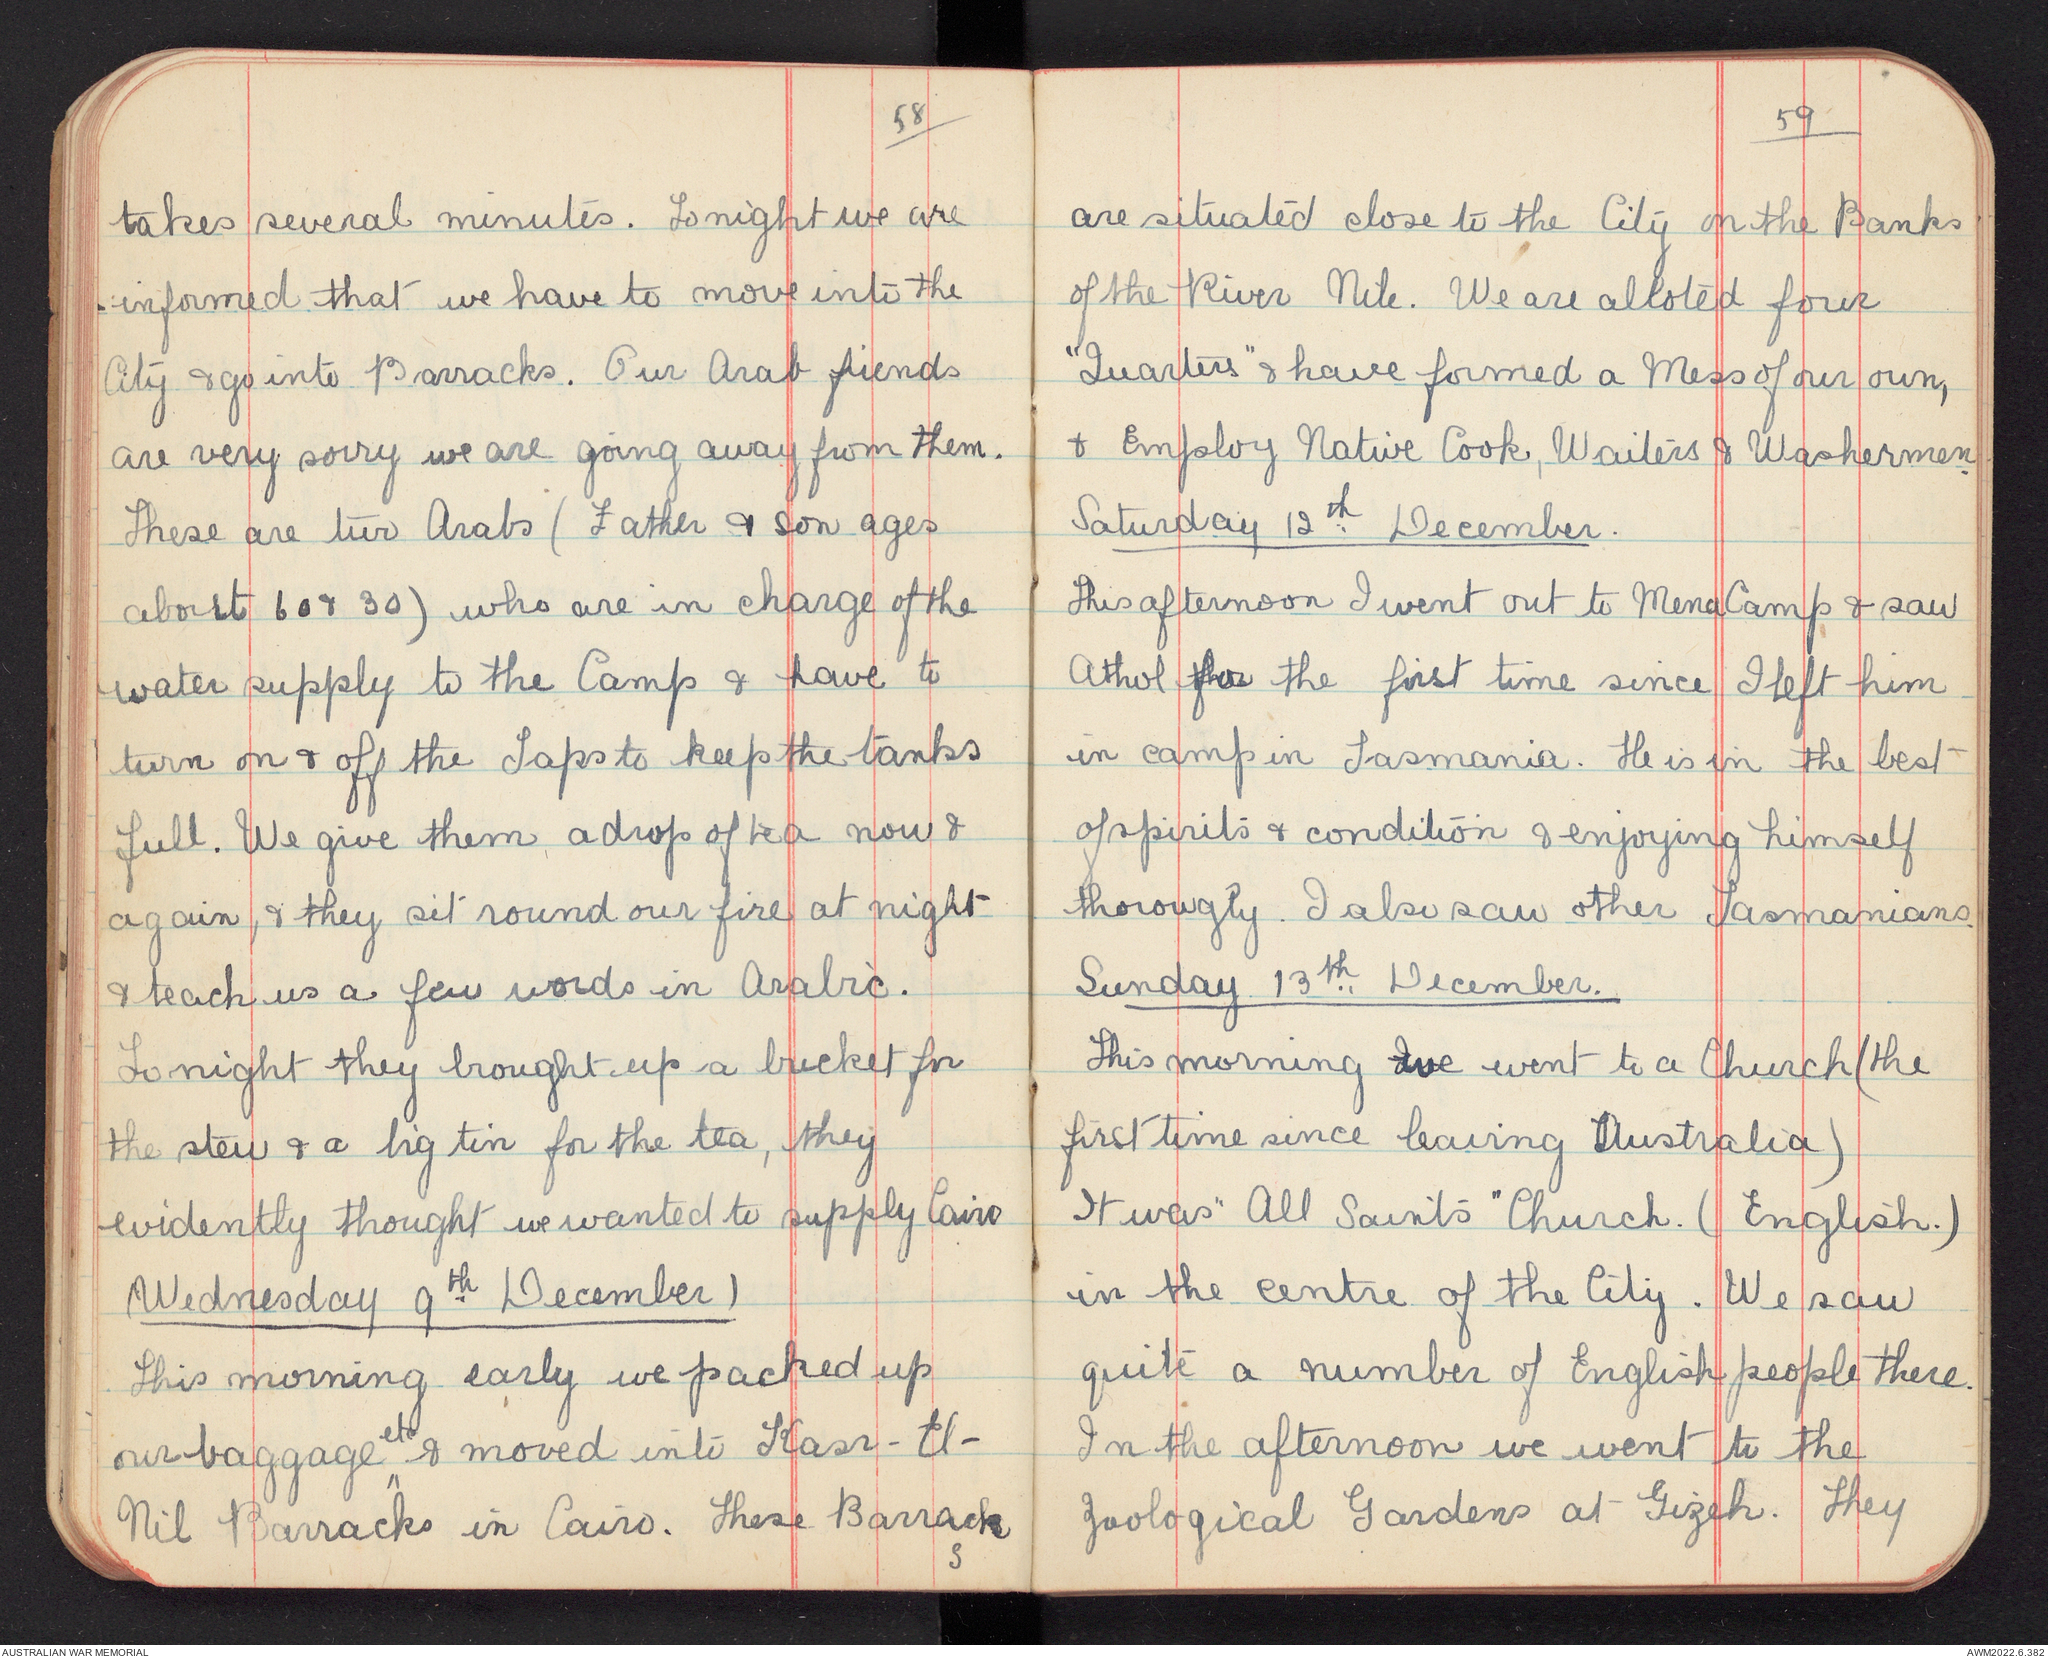 58
takes several minutes. Tonight we are
informed that we have to move into the
City & go into Barracks. Our Arab fiends
are very sorry we are going away from them.
These are two Arabs ( Father & son ages
about 60 & 30) who are in charge of the
water supply to the Camp & have to
turn on & off the Taps to keep the tanks
full. We give them a drop of tea now &
again, & they sit round our fire at night
& teach us a few words in Arabic.
Tonight they brought up a bucket for
the stew & a big tin for the tea, they
evidently thought we wanted to supply Cairo
Wednesday 9th December)
This morning early we packed up
our baggage etc & moved into Kasr-El-
Nil Barracks in Cairo. These Barracks
59
are situated close to the City on the Banks
of the River Nile. We are alloted four
"Quarters" & have formed a Mess of our own,
& Employ Native Cook, Waiters & Washermen.
Saturday 12th December.
This afternoon I went out to Mena Camp & saw
Athol for the first time since I left him
in camp in Tasmania. He is in the best
of spirits & condition & enjoying himself
thorougly. I also saw other Tasmanians.
Sunday 13th December.
This morning we went to a Church (the
first time since leaving Australia)
It was "All Saints" Church. ( English.)
in the centre of the City. We saw
quite a number of English people there.
In the afternoon we went to the
Zoological Gardens at Gizeh. They
AUSTRALIAN WAR MEMORIAL
AWM2022.6.382